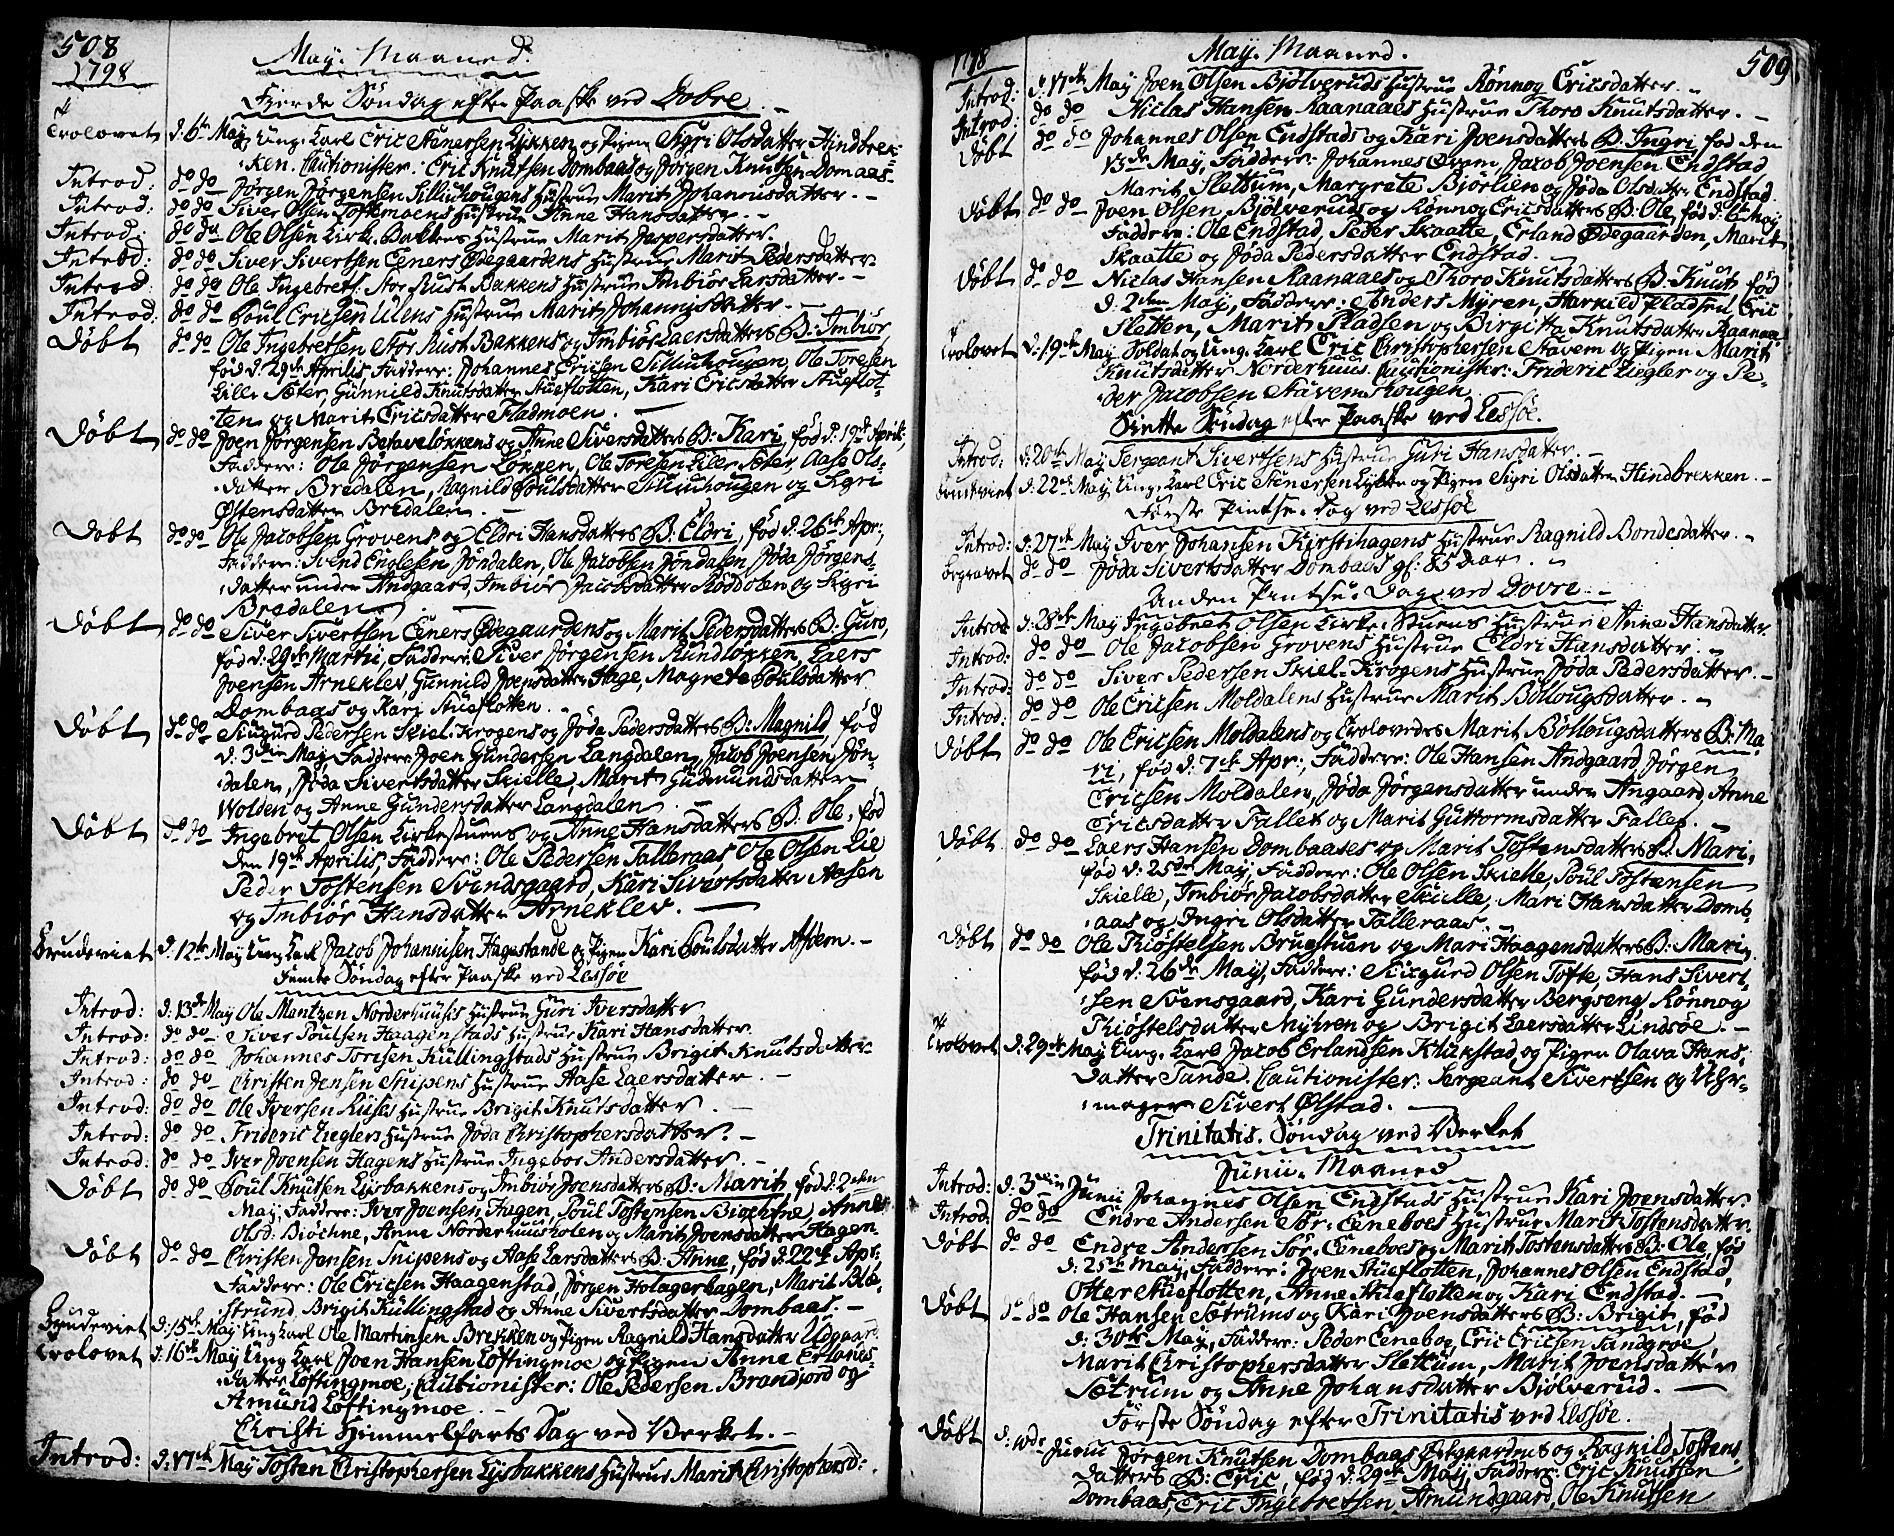 508
1798
May. Maaned.
Fierde Søndag efter Paaske ved Dovre.
Trolovet d: 6te May, Ung-Karl Eric Stenersen Lykken og Pigen Sigri Olsdatter Hindbrek-
ken. Cautionister: Eric Knutsen Dombaas og Jørgen Knutsen Domaas.
Introd: do do Jørgen Jørgensen Silliuhougens Hustrue Marit Johannisdatter.
Introd: do do Siver Olsen Toftemoens Hustrue Anne Hansdatter.
Introd: do do Ole Olsen Kirk-Bakkens Hustrue Marit Jespersdatter.
Introd: do do Siver Sivertsen Eeners Ødegaardens Hustrue Marit Pedersdatter.
Introd: do do Ole Ingebrets: Stor Rust Bakkens Hustrue Imbiør Larsdatter.
Introd: do do Poul Ericsen Ulens Hustrue Marit Johannisdatter.
Døbt do do Ole Ingebretsen Stor Rust Bakkens og Imbiør Laersdatters B: Imbiør
fød d: 29de Aprilis Faddere: Johannes Ericsen Silliuhougen, Ole Toresen
Lille Sæter, Gunnild Knutsdatter Stueflotten, Kari Ericsdatter Stueflot-
ten og Marit Ericsdatter Fladmoen.
Døbt do do Joen Jørgensen Løkkens og Anne Siversdatters B: Kari, fød d: 19de Aprilis,
Faddere: Ole Jørgensen Løkken, Ole Toresen Lille Sæter, Aase Ols-
datter Bredalen, Ragnild Poulsdatter Silliuhougen og Sigri
Østensdatter Bredalen.
Døbt do do Ole Jacobsen Grovens og Eldri Hansdatters B: Eldri, fød d: 26de Apr:,
Faddere: Svend Englesen Jøndalen, Ole Jacobsen Jøndalen, Jøda Jørgens-
datter under Andgaard, Imbiør Jacobsdatter Røddolen og Sigri
Bredalen.
Døbt do do Siver Sivertsen Eeners Ødegaardens og Marit Pedersdatters B: Guro,
fød d: 29de Martii, Faddere: Siver Jørgensen Rundløkken, Laers
Joensen Arneklev, Gunnild Joensdatter Hage, Magrete Poulsdatter
Dombaas og Kari Stueflotten.
Døbt do do Siugurd Pedersen Skiel-Krogens og Jøda Pedersdatters B: Magnild, fød
d: 3die May Faddere: Joen Gundersen Langdalen, Jacob Joensen Jøn-
dalen, Jøda Sivertsdatter Skielle, Marit Gudmundsdatter
Wolden og Anne Gundersdatter Langdalen.
Døbt do do Ingebret Olsen Kirkestuens og Anne Hansdatters B: Ole, fød
den 19de Aprilis, Faddere: Ole Pedersen Talleraas Ole Olsen Lie
Peder Tostensen Svendsgaard, Kari Sivertsdatter Aasen
og Imbiør Hansdatter Arneklev.
Brudeviet d: 12te May Ung Karl Jacob Johannisen Hagestande og Pigen Kari Poulsdatter
Femte Søndag efter Paaske ved Lessøe
Introd: d: 13de May Ole Mentzen Norderhuusis Hustrue Guri Iversdatter
Introd: do do Siver Poulsen Haagenstads Hustrue Kari Hansdatter
Introd: do do Johannes Toresen Küllingstads Hustrue Brigit Knutsdatter
Introd: do do Christen Jensen Snipens Hustrue Aase Laersdatter.
Introd: do do Ole Iversen Riises Hustrue Brigit Knutsdatter.
Introd: do do Frideric Zieglers Hustrue Jøda Christophersdatter.
Introd: do do Iver Joensen Hagens Hustrue Ingebor Andersdatter.
Døbt do do Poul Knutsen Lysbakkens og Imbiør Joensdatters B: Marit, fød d: 2den
May, Faddere: Iver Joensen Hagen, Poul Tostensen Biøchne, Anne
Olsd: Biøchne, Anne Norderhuusholen og Marit Joensdatter Hagen
Døbt do do Christen Jensen Snipens og Aase Larsdatters B: Anne, fød d: 22de Apr:
Faddere: Ole Ericsen Haagenstad, Jørgen Holagerhagen, Marit Blø-
strund, Brigit Küllingstad og Anne Sivertsdatter Dombaas.
Brudeviet d: 15de May Ung Karl Ole Martinsen Brekken og Pigen Ragnild Hansdatter Udgaard.
Trolovet d: 16de May Ung Karl Joen Hansen Loftingmoe og Pigen Anne Erlands-
datter Loftingmoe, Cautionister: Ole Pedersen Brandjord og
Amund Loftingmoe.
Christi Himmelfarts Dag ved Verket.
Introd: d: 17de May Tosten Christophersen Lysbakkens Hustrue Marit Christophersd:
509
1798
May. Maaned.
Introd: d: 17de May Joen Olsen Bjølveruds Hustrue Rønnog Ericsdatter.
Introd: do do Niclas Hansen Raanaaes Hustrue Thoro Knutsdatter.
Døbt do do Johannes Olsen Endstads og Kari Joensdatters B: Ingri fød den
13de May, Faddere: Johannes Qvam, Jacob Joensen Endstad
Marit Slettum, Margrete Bjørlien og Jøda Olsdatter Endstad.
Døbt do do Joen Olsen Bjølveruds og Rønnog Ericsdatters B: Ole, fød d: 6te May
Faddere: Ole Endstad, Peder Skaatte, Erland Ødegaarden, Marit
Skaatte og Jøda Pedersdatter Endstad.
Døbt do do Niclas Hansen Raanaaes og Thoro Knutsdatters B: Knut fød
d: 2den May, Faddere: Anders Myren, Harkild Pladsen, Eric
Sletten, Marit Pladsen og Birgitta Knutsdatter Raanaae
Trolovet d: 19de May Soldat og Ung-Karl Eric Christophersen Stavem og Pigen Marit
Knutsdatter Norderhuus. Cautionister: Frideric Ziegler og Pe-
der Jacobsen Stavemshougen.
Siette Søndag efter Paaske ved Lessøe.
Introd: d: 20de May Sergeant Sivertsens Hustrue Guri Hansdatter.
Brudeviet d: 22de May Ung-Karl Eric Stenersen Lykken og Pigen Sigri Olsdatter Hindbrekken.
Første Pintse-Dag ved Lessøe
Introd: d: 27de May Iver Johansen Kirstihagens Hustrue Ragnild Bondesdatter.
Begravet do do Jøda Sivertsdatter Dombaas gl: 85 Aar.
Anden Pintse-Dag ved Dovre.
Introd d: 28de May Ingebret Olsen Kirke-Stuens Hustrue Anne Hansdatter.
Introd: do do Ole Jacobsen Grovens Hustrue Eldri Hansdatter.
Introd: do do Siver Pedersen Skiel-Krogens Hustrue Jøda Pedersdatter.
Introd: do do Ole Ericsen Moldalens Hustrue Marit Botlougsdatter.
Døbt do do Ole Ericsen Moldalens og Trolovedes Marit Bøtlougsdatters B: Ma-
ri, fød d: 7de Apr:, Faddere: Ole Hansen Andgaard Jørgen
Ericsen Moldalen, Jøda Jørgensdatter under Angaard, Anne
Ericsdatter Fallet og Marit Guttormsdatter Fallet.
Døbt do do Laers Hansen Dombaases og Marit Tostensdatters B: Mari,
fød d: 25de May, Faddere: Ole Olsen Skielle, Poul Tostensen
Skielle, Imbiør Jacobsdatter Skielle, Mari Hansdatter Domb-
aas og Ingri Olsdatter Talleraas.
Døbt do do Ole Kiøstelsen Bruestuen og Mari Haagensdatters B: Mari,
fød d: 26de May, Faddere: Siugurd Olsen Tofte, Hans Sivert-
sen Svensgaard, Kari Gundersdatter Bergseng Rønnog
Kiøstelsdatter Myhren og Brigit Laersdatter Lindsøe.
Trolovet d: 29de May Ung-Karl Jacob Erlandsen Klukstad og Pigen Olava Hans-
datter Tande. Cautionister: Sergeant Sivertsen og Uhr-
mager Sivert Ølstad.
Trinitatis Søndag ved Verket
Junii-Maaned
Introd: d: 3die Junii Johannes Olsen Endstads Hustrue Kari Joensdatter.
Introd: do do Endre Andersen Sør-Eeneboes Hustrue Marit Tostensdatter.
Døbt do do Endre Andersen Sør-Eeneboes og Marit Tostensdatters B: Ole, fød
d: 25de May, Faddere: Joen Stueflotten, Johannes Olsen Endstad,
Otter Stueflotten, Anne Stueflotten og Kari Endstad.
Døbt do do Ole Hansen Sætrums og Kari Joensdatters B: Brigit, fød
d: 30te May, Faddere: Peder Eenebo, Eric Ericsen Sandgroe
Marit Christophersdatter Slettum, Marit Joensdatter
Sætrum og Anne Johansdatter Bjølverud.
Første Søndag efter Trinitatis ved Lessøe.
Døbt d: 10de Junii Jørgen Knutsen Dombaas og Ragnild Tostens-
datters B: Eric, fød d: 29de May, Faddere: Eric Knutsen
Dombaas, Eric Ingebretsen Amundgaard, Ole Knutsen